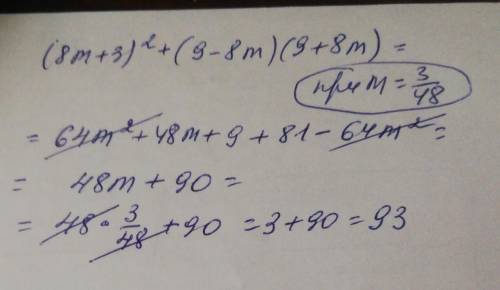 (8m+3)²+(9-8m)(9+8m)=
при m=3/48
=64m²+48m+9+81-64m²=
= 48m+90=
=48·3/48+90=3+90=93